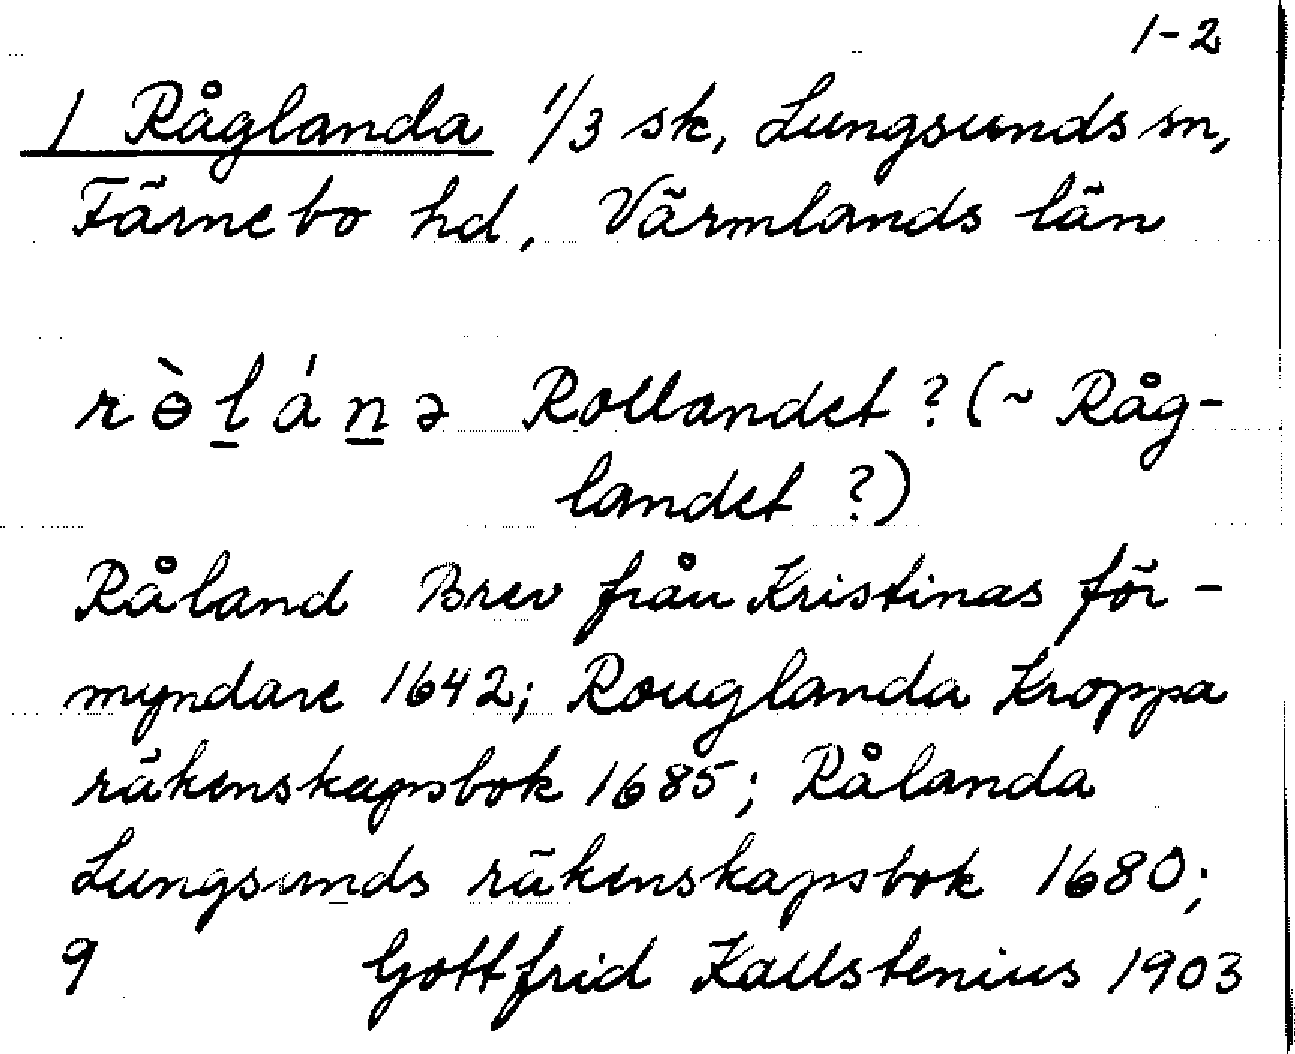 1-2
1 Råglanda 1/3 sk, Lungsunds sn,
Färnebo hd, Värmlands län
rɵ̀l̲án̲ə Rollandet ? (~ Råg-
landet ?)
Råland Brev från Kristinas för-
myndare 1642; Rouglanda Kroppa
räkenskapsbok 1685; Rålanda
Lungsunds räkenskapsbok 1680;
9 Gottfrid Kallstenius 1903